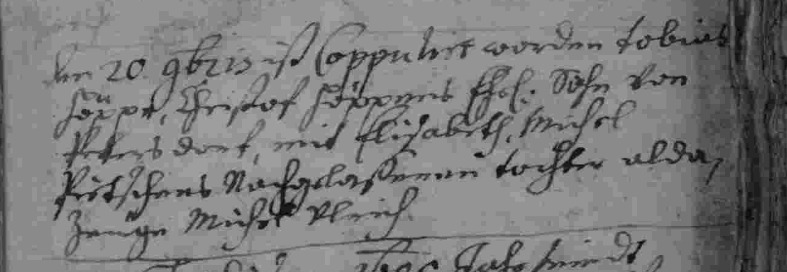 den 20 9bris ist Coppuliret worden tobias
Höppe, Christof Höppens Ehel. Sohn von
Petersdorf, mit Elisabeth, Michel
Pietschens Nachgelaßenen tochter alda,
Zeuge Michel Ulrich.
1690 Jahr